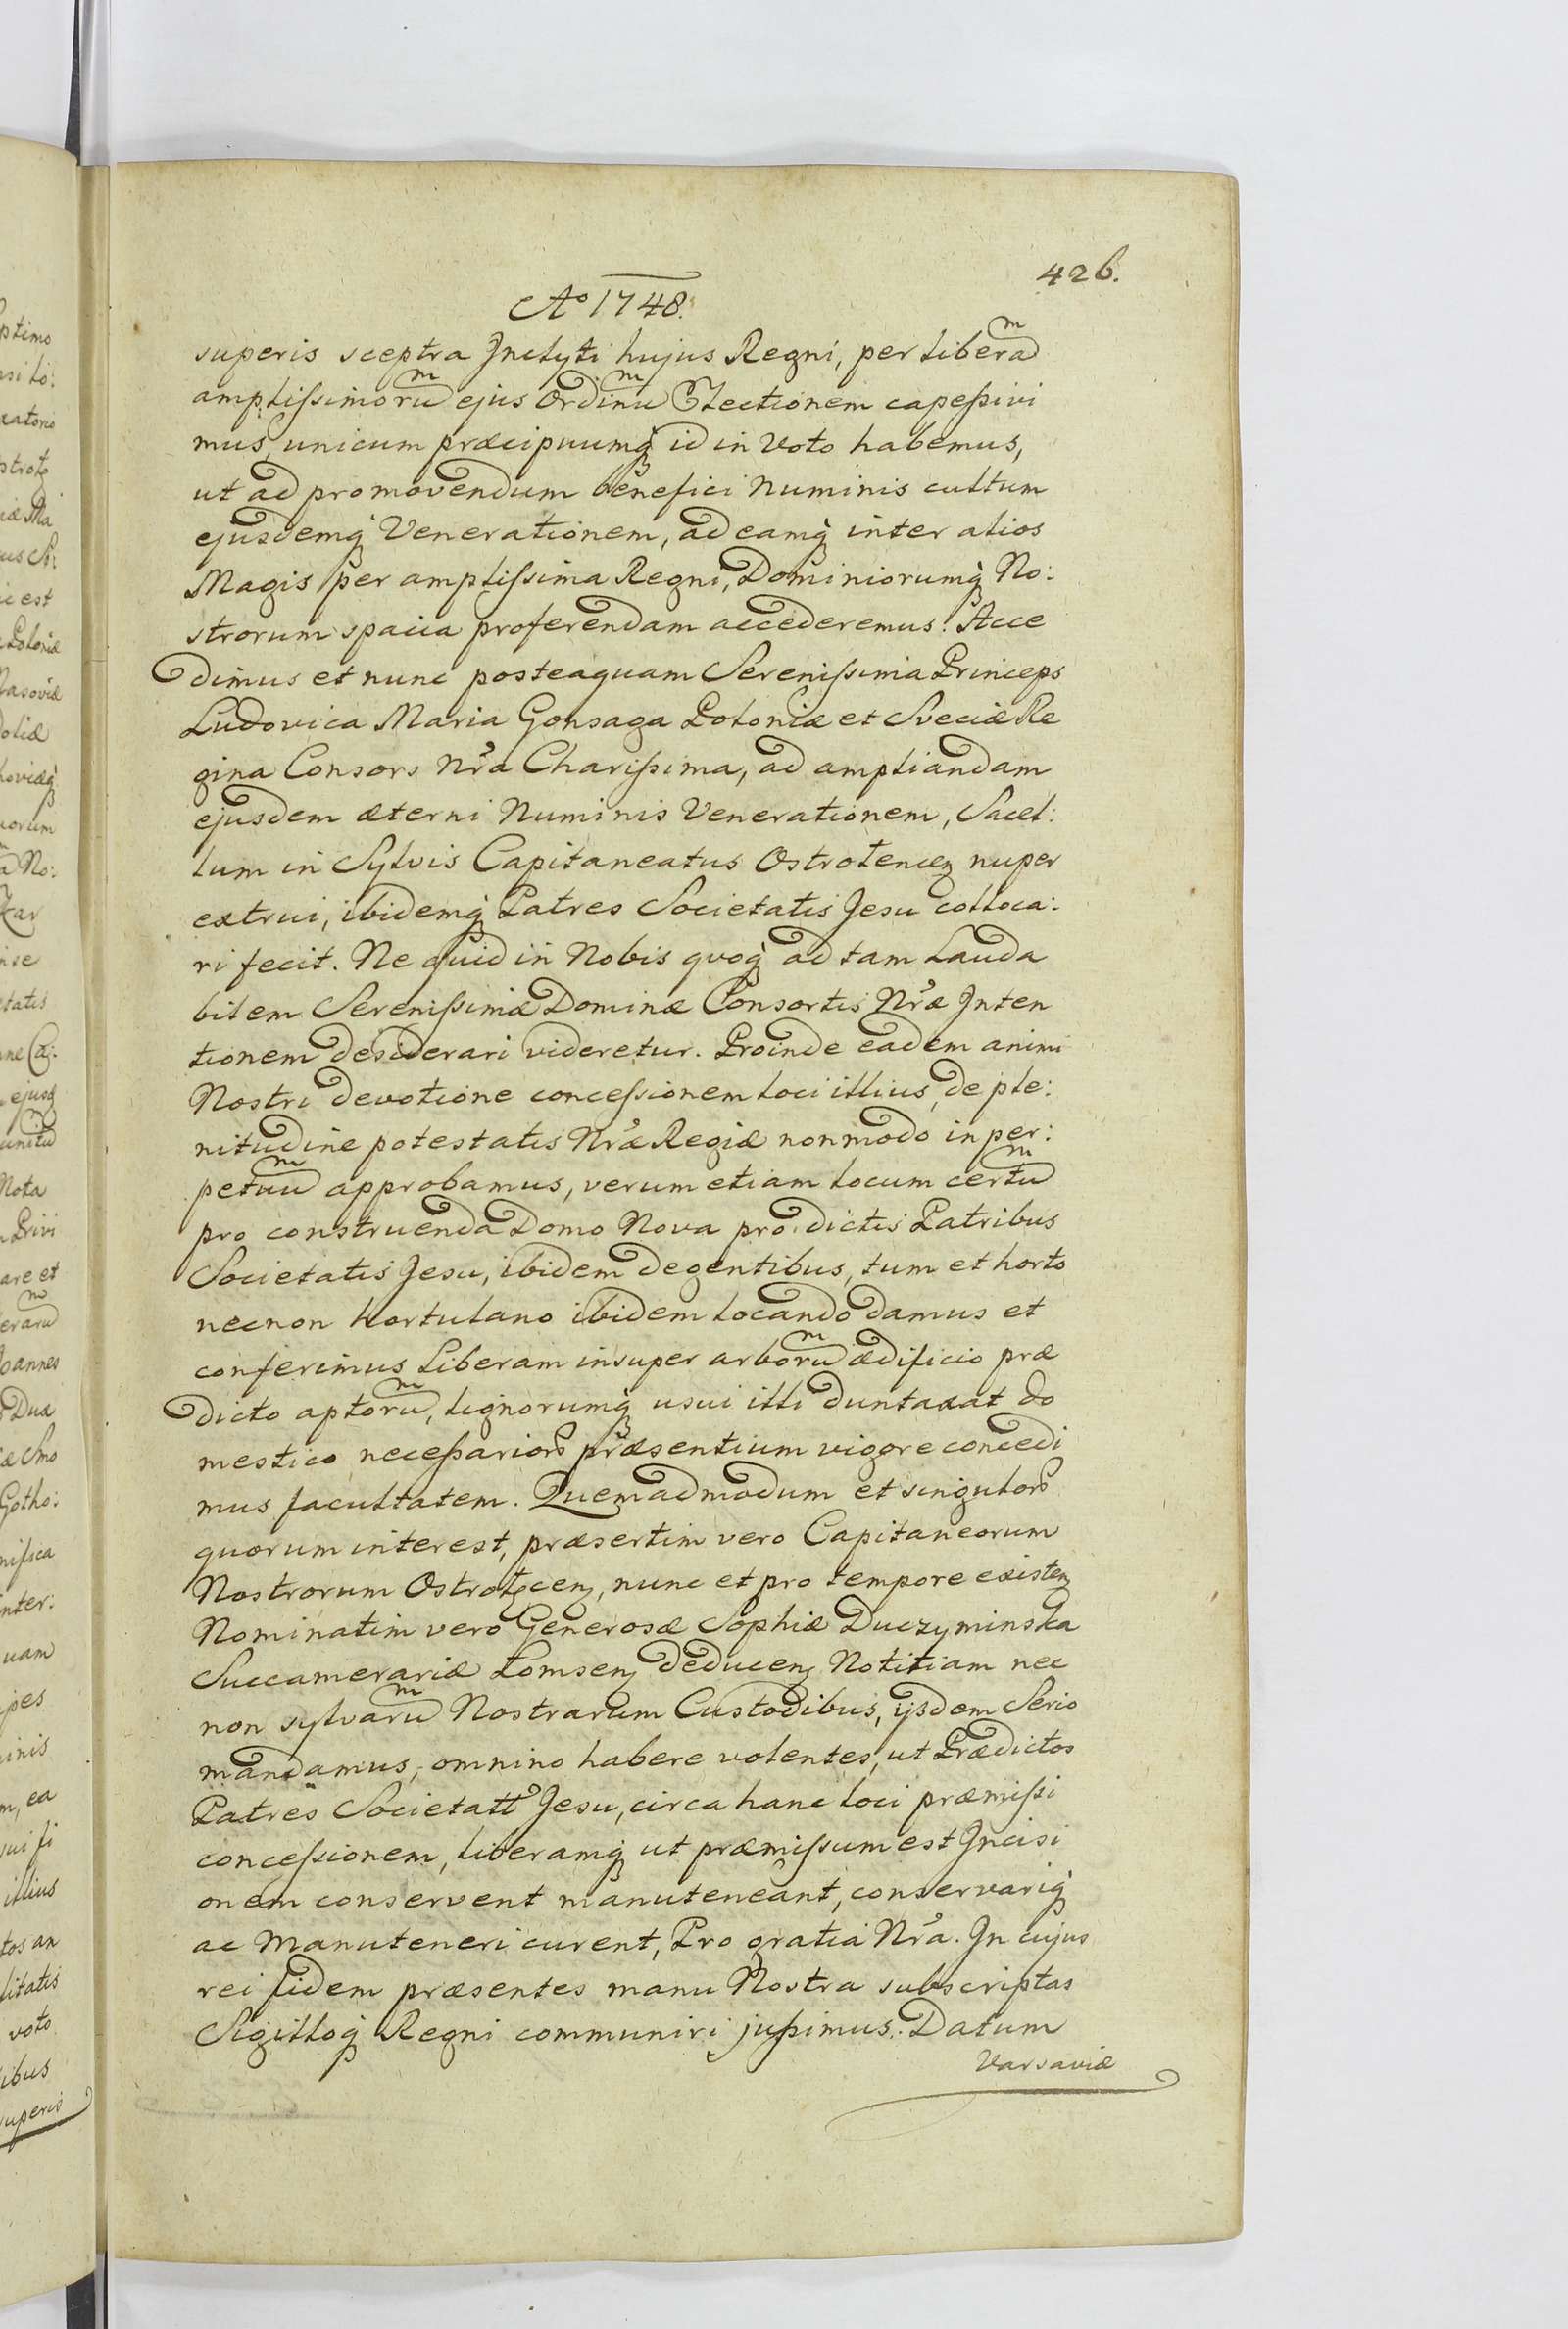 426.
Aº 1748.
superis sceptra Inclyti hujus Regni, per liberam
amplissimorum ejus Ordinum Electionem capessivi
mus, unicum præcipuumq́ id in voto habemus,
ut ad promovendum benefici Numinis cultum
ejusdemq́ Venerationem, ad eamq́ inter alios
Magis per amplissima Regni, Dominiorumq́ No:
strorum spatia proferendam accederemus. Acce
dimus et nunc posteaquam Serenissima Princeps
Ludovica Maria Gonsaga Poloniæ et Sveciæ Re
gina Consors Nr̃a Charissima, ad ampliandam
ejusdem æterni Numinis Venerationem, Sacel:
lum in Sylvis Capitaneatus Ostrolencen nuper
extrui, ibidemq́ Patres Societatis Jesu colloca:
ri fecit. Ne quid in Nobis quoq́ ad tam Lauda
bilem Serenissimæ Dominæ Consortis Nr̃æ Inten
tionem desiderari videretur. Proinde eadem animi
Nostri devotione concessionem loci illius, de ple:
nitudine potestatis Nr̃æ Regiæ non modo in per:
petuum approbamus, verum etiam locum certum
pro construenda Domo Nova pro dictis Patribus
Societatis Jesu, ibidem degentibus, tum et horto
necnon hortulano ibidem locando damus et
conferimus Liberam insuper arborum ædificio præ
dicto aptorum, lignorumq́ usui illi duntaxat do
mestico necessarior̃ præsentium vigore concedi
mus facultatem. Quemadmodum et singulor̃
quorum interest, præsertim vero Capitaneorum
Nostrorum Ostrołęcen, nunc et pro tempore existen
Nominatim vero Generosæ Sophiæ Duczyminska
Succamerariæ Lomsen deducen Notitiam nec
non sylvarum Nostrarum Custodibus, ijsdem Serio
mandamus, omnino habere volentes, ut Prædictos
Patres Societatt̃ Jesu, circa hanc loci præmissi
concessionem, liberamq́ ut præmissum est Incisi
onem conservent manuteneant, conservariq́
ac Manuteneri curent, Pro gratia Nr̃a. In cujus
rei fidem præsentes manu Nostra subscriptas
Sigilloq́ Regni communiri jussimus. Datum
Varsaviæ